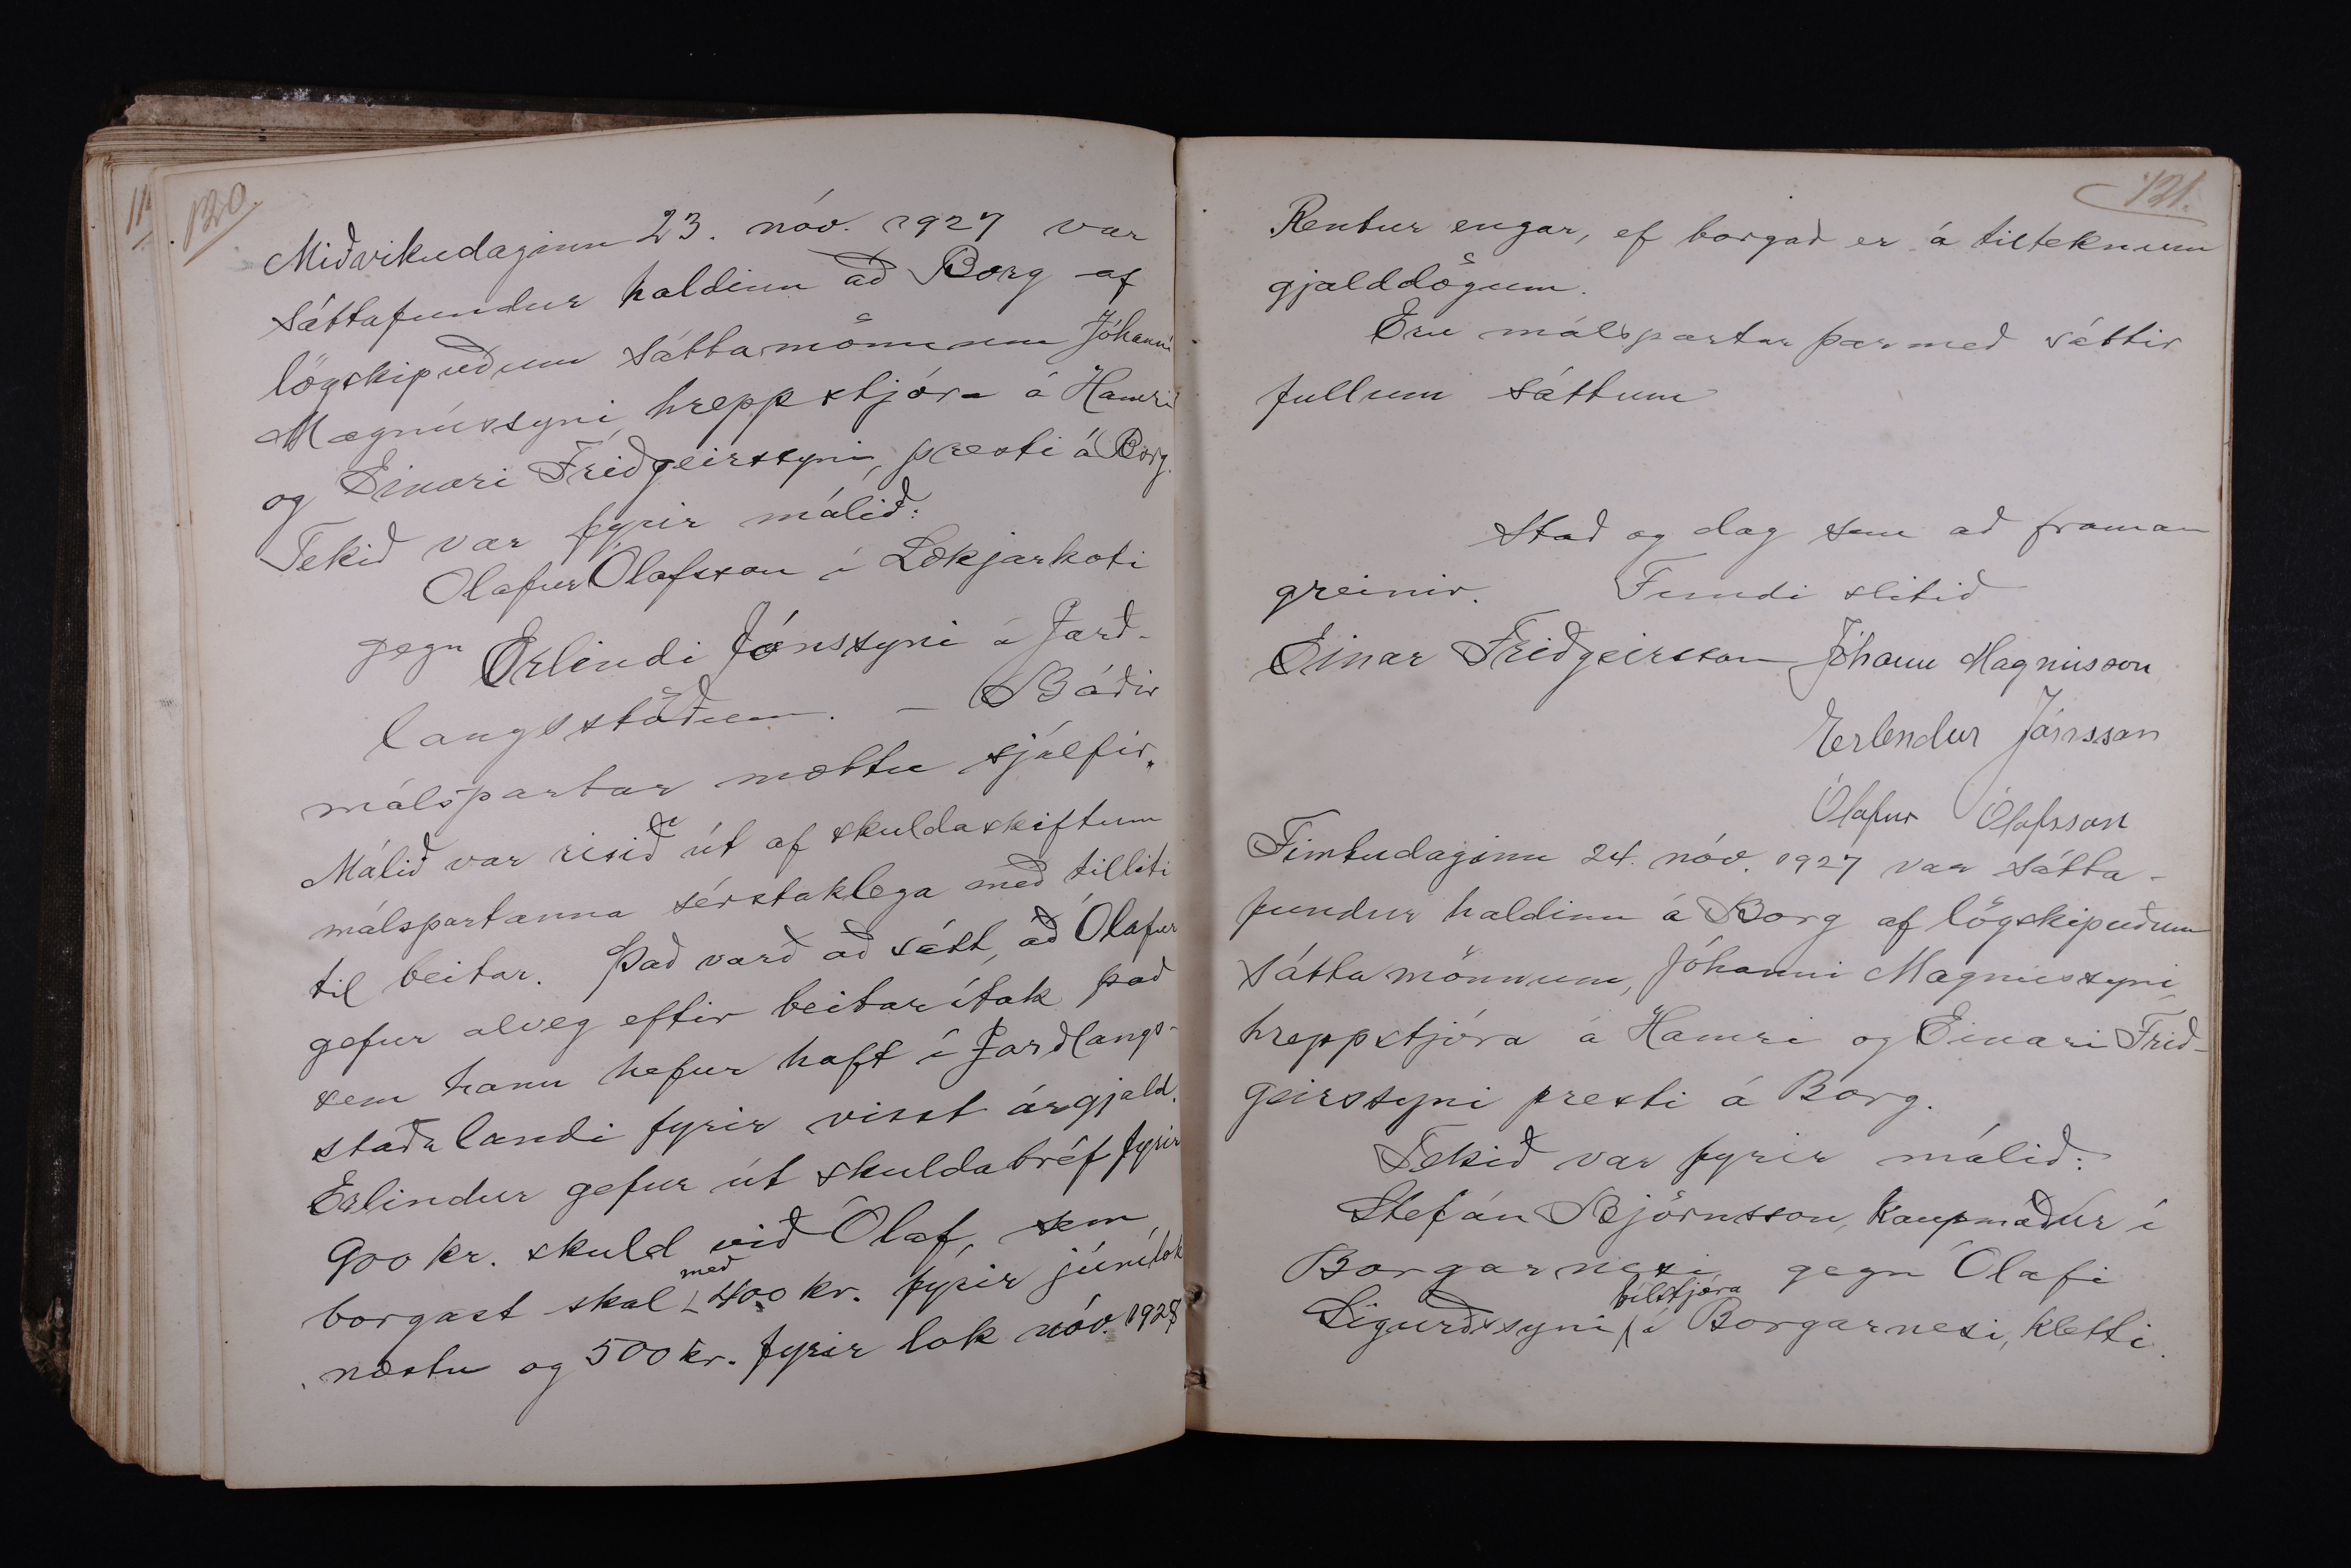 120.
Miðvikudaginn 23. nóv. 1927 var
sáttafundur haldinn að Borg af
lögskipuðum sáttamönnum Jóhanni
Magnússyni, hreppstjóra á Hamri
og Einari Friðgeirssyni, presti á Borg.
Tekið var fyrir málið:
Ólafur Ólafsson í Lækjarkoti
gegn Erlindi Jónssyni á Jarð-
langsstöðum. – Báðir
málspartar mættu sjálfir.
Málið var risið út af skuldaskiftum
málspartanna sérstaklega með tilliti
til beitar. Það varð að sátt, að Ólafur
gefur alveg eftir beitarítak það
sem hann hefur haft í Jarðlangs-
staðalandi fyrir visst árgjald.
Erlindur gefur út skuldabréf fyrir
900 kr. skuld við Ólaf, sem
borgast skal með 400 kr. fyrir júnílok
næstu og 500 kr. fyrir lok nóv. 1928
121.
Rentur engar, ef borgað er á tilteknum
gjalddögum.
Eru málspartar þarmeð sáttir
fullum sáttum
Stað og dag sem að framan
greinir. Fundi slitið
Einar Friðgeirsson Jóhann Magnússon
Erlendur Jónsson
Ólafur Ólafsson
Fimtudaginn 24. nóv. 1927 var sátta-
fundur haldinn á Borg af lögskipuðum
sáttamönnum, Jóhanni Magnússyni,
hreppstjóra á Hamri og Einari Frið-
geirssyni presti á Borg.
Tekið var fyrir málið:
Stefán Björnsson, kaupmaður í
Borgarnesi gegn Ólafi
Sigurðssyni bílstjóra í Borgarnesi, Kletti.